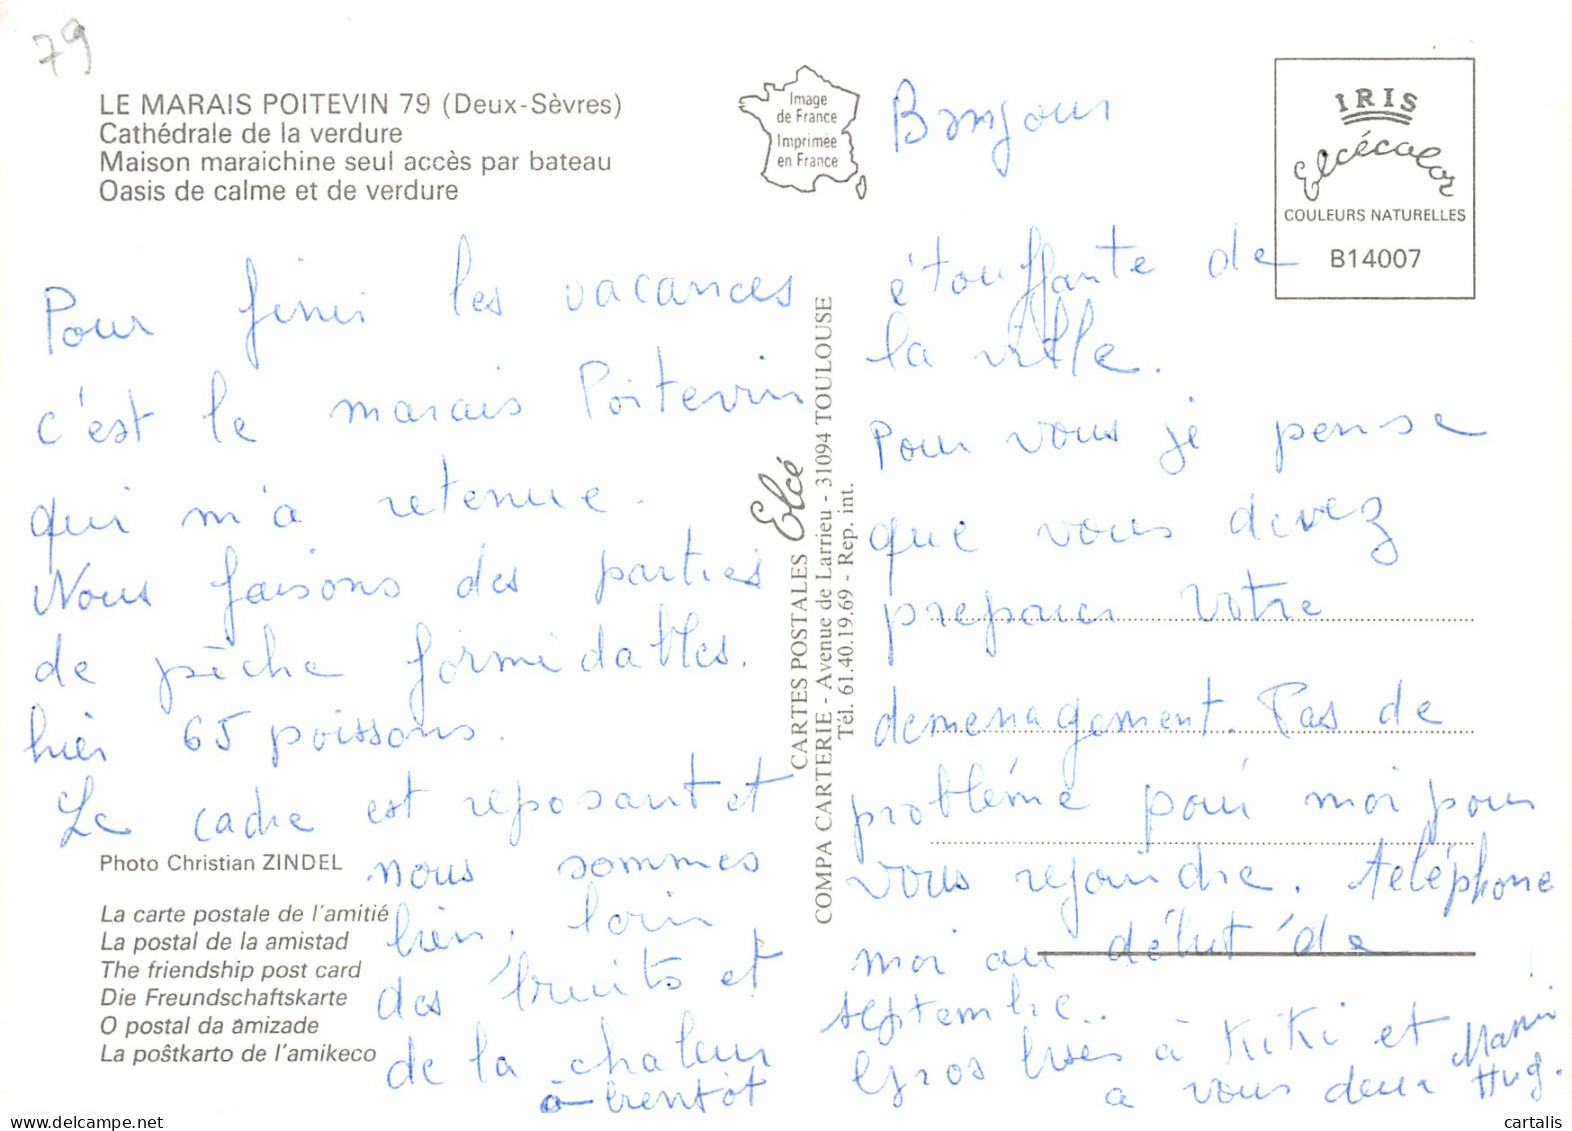 79
LE MARAIS POITEVIN 79 (Deux-Sèvres)
Cathédrale de la verdure
Maison maraichine seul accès par bateau
Oasis de calme et de verdure
Image
de France
Imprimée
en France
IRIS
Elcécolor
COULEURS NATURELLES
B14007
Bonjour
Pour finir les vacances
c'est le marais Poitevin
qui m'a retenue.
Nous faisons des parties
de pêche formidables.
hier 65 poissons.
Le cadre est reposant et
nous sommes
bien, loin
des bruits et
de la chaleur
étouffante de
la ville.
Pour vous je pense
que vous devez
preparer votre
demenagement. Pas de
probléme pour moi pour
vous rejoindre. téléphone
moi au début de
septembre..
Gros bises à Kiki et
a vous deux
à bientôt
Mami
Hug.
Photo Christian ZINDEL
La carte postale de l'amitié
La postal de la amistad
The friendship post card
Die Freundschaftskarte
O postal da amizade
La poŝtkarto de l'amikeco
CARTES POSTALES Elcé
COMPA CARTERIE - Avenue de Larrieu - 31094 TOULOUSE
Tél. 61.40.19.69 - Rep. int.
cartalis